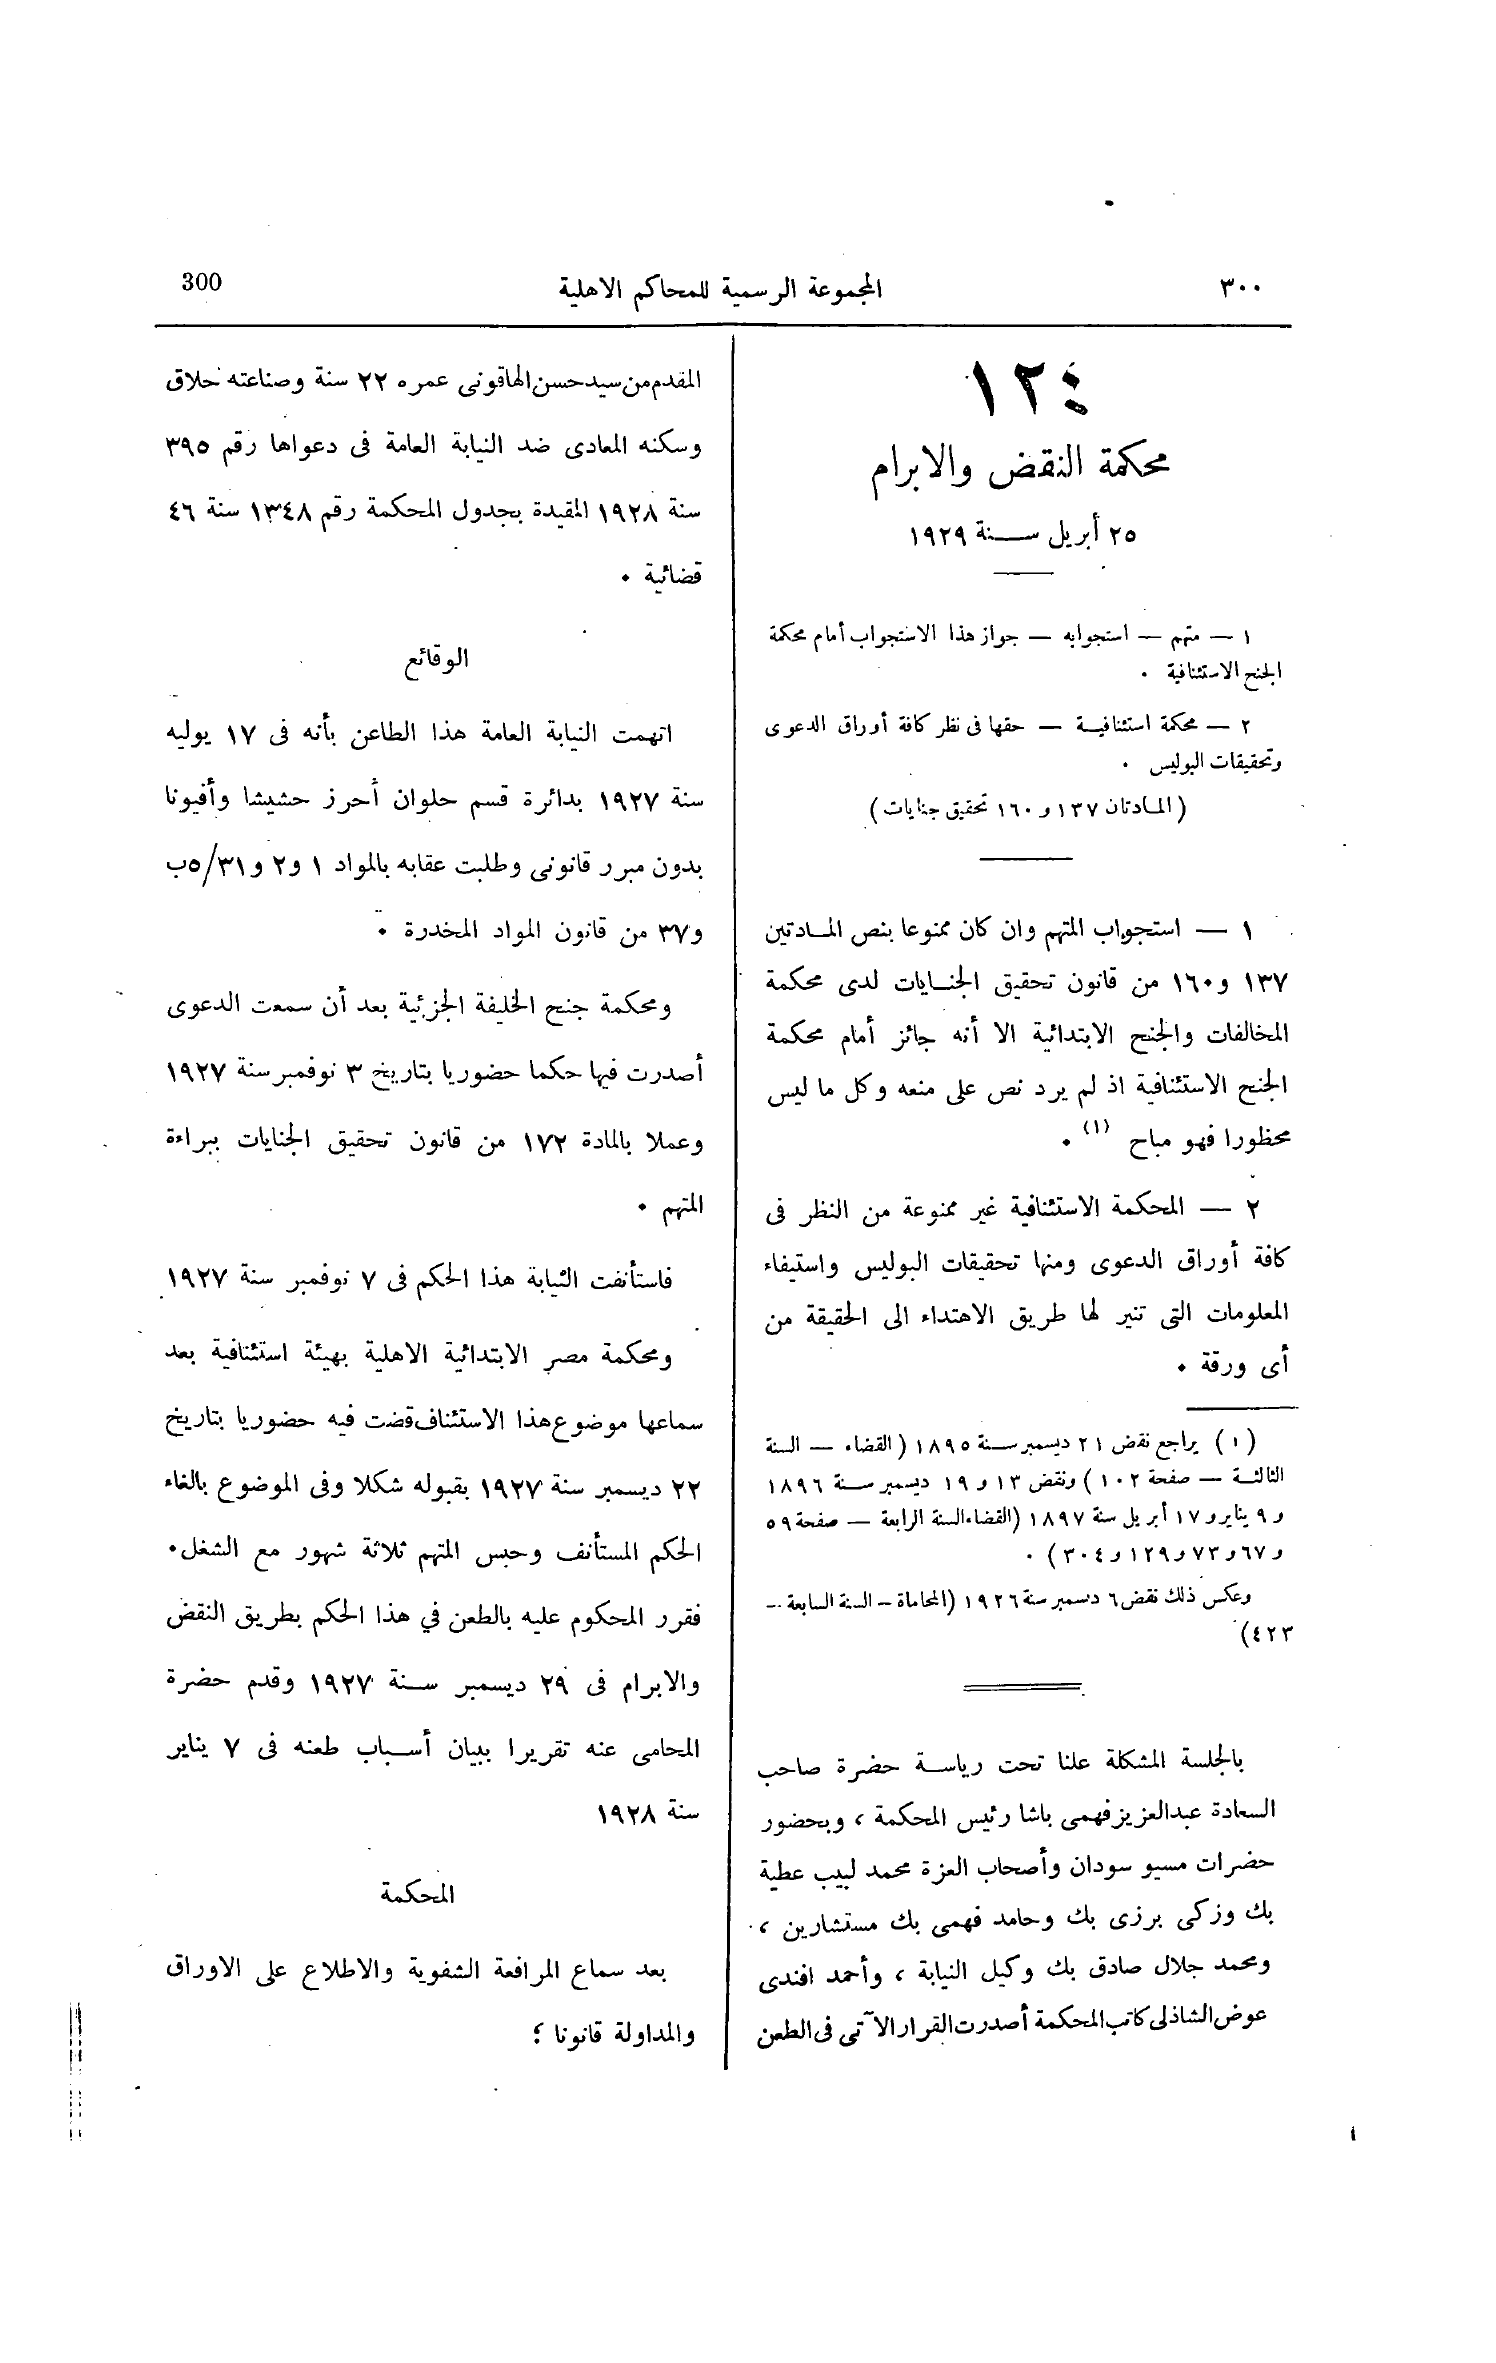 ٣٠٠
المجموعة الرسمية للمحاكم الاهلية
300
١٢٤
محكمة النقض والابرام
٢٥ أبريل سـنة ١٩٢٩
١ — متهم — استجوابه — جواز هذا الاستجواب أمام محكمة
الجنح الاستئنافية ٠
٢ — محكمة استئنافيـة — حقها فى نظر كافة أوراق الدعوى
وتحقيقات البوليس ٠
(المـادتان ١٣٧ و ١٦٠ تحقيق جنايات)
١ — استجواب المتهم وان كان ممنوعا بنص المـادتين
١٣٧ و١٦٠ من قانون تحقيق الجنـايات لدى محكمة
المخالفات والجنح الابتدائية الا أنه جائز أمام محكمة
الجنح الاستئنافية اذ لم يرد نص على منعه وكل ما ليس
محظورا فهو مباح (١) ٠
٢ — المحكمة الاستئنافية غير ممنوعة من النظر فى
كافة أوراق الدعوى ومنها تحقيقات البوليس واستيفاء
المعلومات التى تنير لها طريق الاهتداء الى الحقيقة من
أى ورقة ٠
(١) يراجع نقض ٢١ ديسمبر سـنة ١٨٩٥ (القضاء — السنة
الثالثـة — صفحة ١٠٢) ونقض ١٣ و ١٩ ديسمبر سـنة ١٨٩٦
و ٩ يناير و ١٧ أبريل سنة ١٨٩٧ (القضاء السنة الرابعة — صفحة ٥٩
و ٦٧ و ٧٣ و ١٢٩ و ٣٠٤) ٠
وعكس ذلك نقض ٦ دسمبر سنة ١٩٢٦ (المحاماة – السنة السابعة –
٤٢٣)
بالجلسة المشكلة علنا تحت رياسـة حضرة صاحب
السعادة عبدالعزيز فهمى باشا رئيس المحكمة ، وبحضور
حضرات مسيو سودان وأصحاب العزة محمد لبيب عطية
بك وزكى برزى بك وحامد فهمى بك مستشارين ،
ومحمد جلال صادق بك وكيل النيابة ، وأحمد افندى
عوض الشاذلى كاتب المحكمة أصدرت القرار الآتى فى الطعن
المقدم من سيد حسن الهاقونى عمره ٢٢ سنة وصناعته حلاق
وسكنه المعادى ضد النيابة العامة فى دعواها رقم ٣٩٥
سنة ١٩٢٨ المقيدة بجدول المحكمة رقم ١٣٤٨ سنة ٤٦
قضائية ٠
الوقائع
اتهمت النيابة العامة هذا الطاعن بأنه فى ١٧ يوليه
سنة ١٩٢٧ بدائرة قسم حلوان أحرز حشيشا وأفيونا
بدون مبرر قانونى وطلبت عقابه بالمواد ١ و٢ و٥/٣١ب
و٣٧ من قانون المواد المخدرة ٠
ومحكمة جنح الخليفة الجزئية بعد أن سمعت الدعوى
أصدرت فيها حكما حضوريا بتاريخ ٣ نوفمبر سنة ١٩٢٧
وعملا بالمادة ١٧٢ من قانون تحقيق الجنايات ببراءة
المتهم ٠
فاستأنفت النيابة هذا الحكم فى ٧ نوفمبر سنة ١٩٢٧
ومحكمة مصر الابتدائية الاهلية بهيئة استئنافية بعد
سماعها موضوع هذا الاستئناف قضت فيه حضوريا بتاريخ
٢٢ ديسمبر سنة ١٩٢٧ بقبوله شكلا وفى الموضوع بالغاء
الحكم المستأنف وحبس المتهم ثلاثة شهور مع الشغل٠
فقرر المحكوم عليه بالطعن في هذا الحكم بطريق النقض
والابرام فى ٢٩ ديسمبر سـنة ١٩٢٧ وقدم حضرة
المحامى عنه تقريرا ببيان أسـباب طعنه فى ٧ يناير
سنة ١٩٢٨
المحكمة
بعد سماع المرافعة الشفوية والاطلاع على الاوراق
والمداولة قانونا ؛